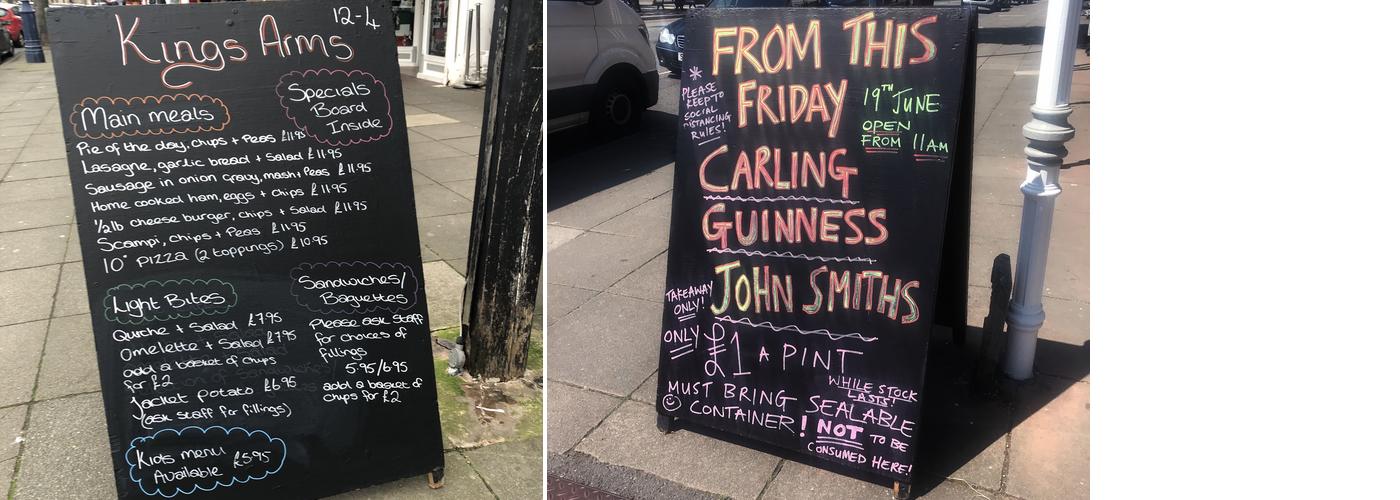 12-4
Kings Arms
Specials
Board
Inside
Main meals
Pie of the day, chips + Peas £11.95
Lasagne, garlic bread + Salad £11.95
Sausage in onion gravy, mash + Peas £11.95
Home cooked ham, eggs + chips £11.95
1/2lb cheese burger, chips + Salad £11.95
Scampi, chips + Peas £11.95
10" PIZZA (2 toppings) £10.95
Light Bites
Quiche + Salad £7.95
Omelette + Salad £7.95
add a basket of chips
for £2
Jacket Potato £6.95
(ask staff for fillings)
Sandwiches/
Baguettes
Please ask Staff
for choices of
fillings
5.95/6.95
add a basket of
chips for £2
Kids menu
Available £5.95
FROM THIS
FRIDAY
19TH JUNE
OPEN
FROM 11AM
* PLEASE
KEEP TO
SOCIAL
DISTANCING
RULES!
CARLING
GUINNESS
JOHN SMITHS
TAKEAWAY
ONLY!
ONLY £1 A PINT
WHILE STOCK
LASTS!
MUST BRING SEALABLE
CONTAINER! NOT TO BE
CONSUMED HERE!